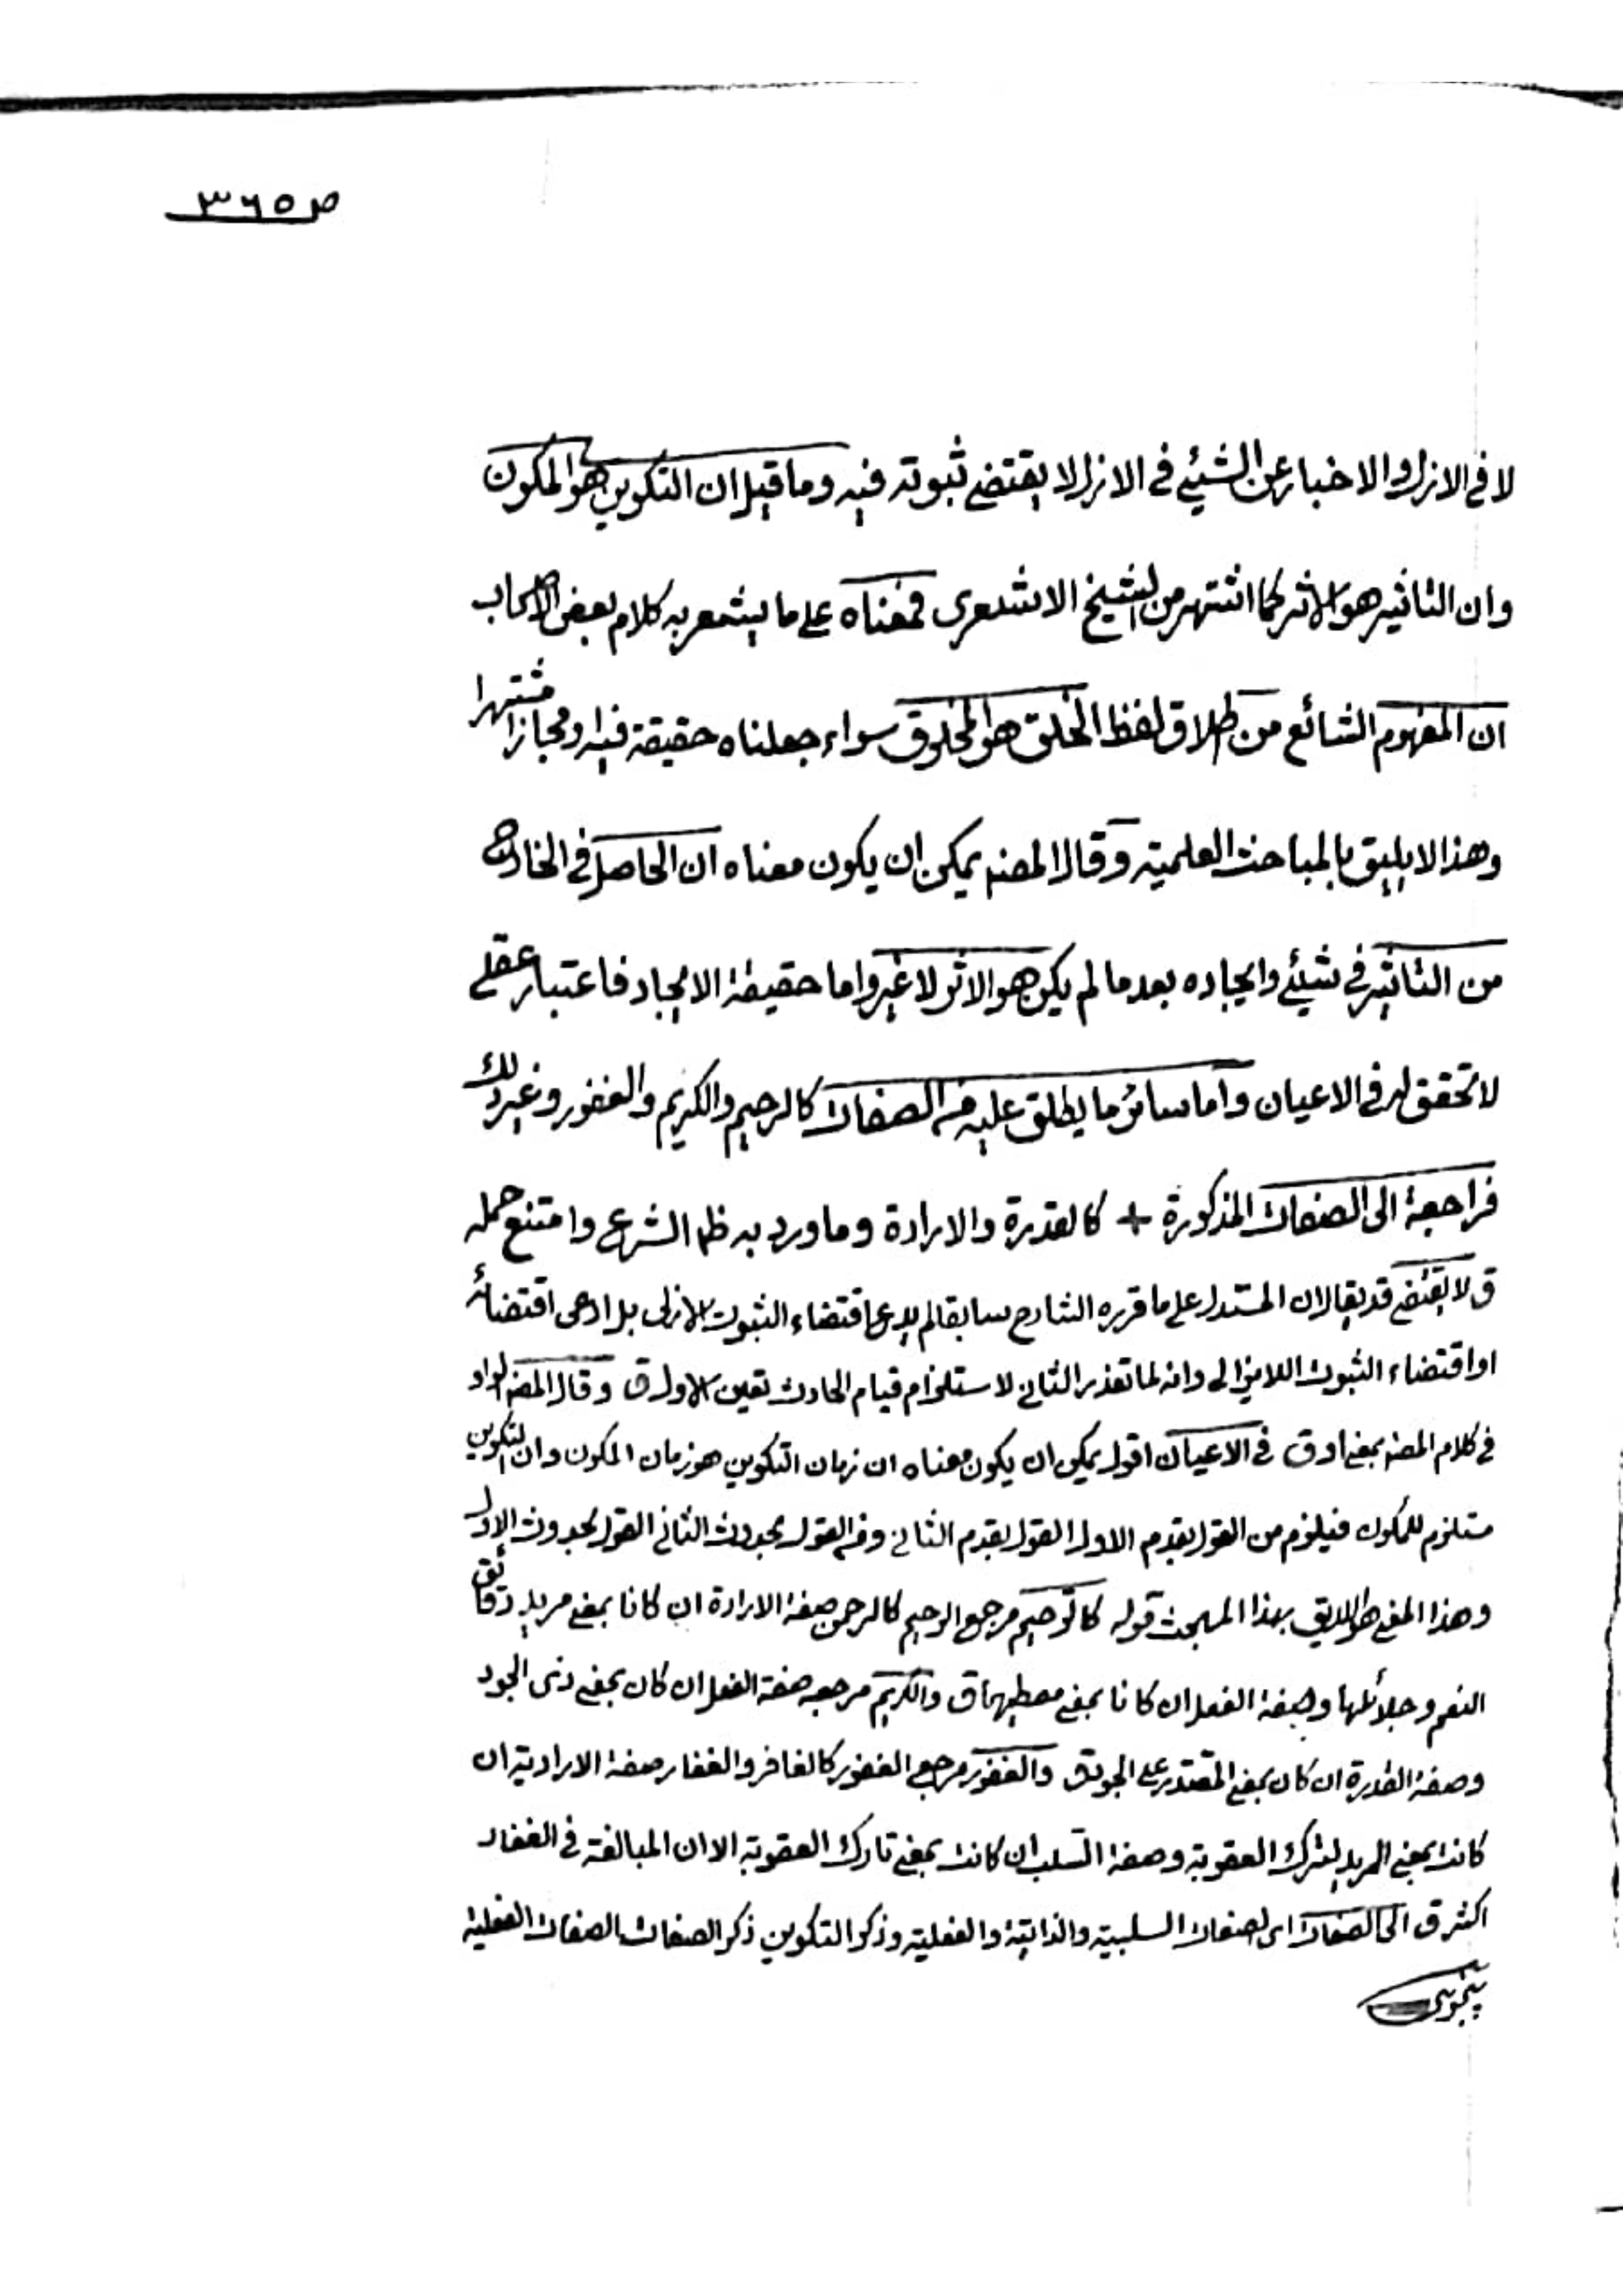 ص ٣٦٥
لا فى الازل والاخبار عن الشيئ فى الازل لا يقتضى ثبوته فيه وما قيل ان التكوين هو المكون
وان التاثير هو الاثر كما اشتهر من الشيخ الاشعرى فمعناه على ما يشعر به كلام بعض الاصحاب
ان المفهوم الشائع من اطلاق لفظ الخلق هو المخلوق سواء جعلناه حقيقة فيه او مجازا مشتهرا
وهذا لا يليق بالمباحث العلمية وقال المصنم يمكن ان يكون معناه ان الحاصل فى الخارج
من التاثير فى شيئ وايجاده بعد ما لم يكن هو الاثر لا غير واما حقيقة الايجاد فاعتبار عقلى
لا تحقق له فى الاعيان واما سائر ما يطلق عليه من الصفات كالرحيم والكريم والغفور وغير ذلك
فراجعة الى الصفات المذكورة + كالقدرة والارادة وما ورد به ظا الشرع وامتنع حمله
ق لا يقتضى قد يقال ان المستدل على ما قرره الشارح سابقا لم يدع اقتضاء الثبوت الازلى بل ادعى اقتضائه
او اقتضاء الثبوت اللايزالى وانه لما تعذر الثانى لاستلزام قيام الحادث تعين الاول ق وقال المصنم الواو
فى كلام المصنم بمعنى او ق فى الاعيان اقول يمكن ان يكون معناه ان زمان التكوين هو زمان المكون وان التكوين
مستلزم للمكون فيلزم من القول بقدم الاول القول بقدم الثانى ومن القول بحدوث الثانى القول بحدوث الاول
وهذا المعنى هو اللايق بهذا المبحث قوله كالرحيم مرجع الرحيم كالرحمن صفة الارادة ان كانا بمعنى مريد دقائق
النعم وجلائلها وصفة الفعل ان كانا بمعنى معطيهما ق والكريم مرجعه صفة الفعل ان كان بمعنى ذى الجود
وصفة القدرة ان كان بمعنى المقتدر على الجود ق والغفور مرجع الغفور كالغافر والغفار صفة الارادية ان
كانت بمعنى المريد لترك العقوبة وصفة السلب ان كانت بمعنى تارك العقوبة الا ان المبالغة فى الغفار
اكثر ق الى الصفات اى الصفات السلبية والذاتية والفعلية وذكر التكوين ذكر الصفات الصفات الفعلية
پنجوينى